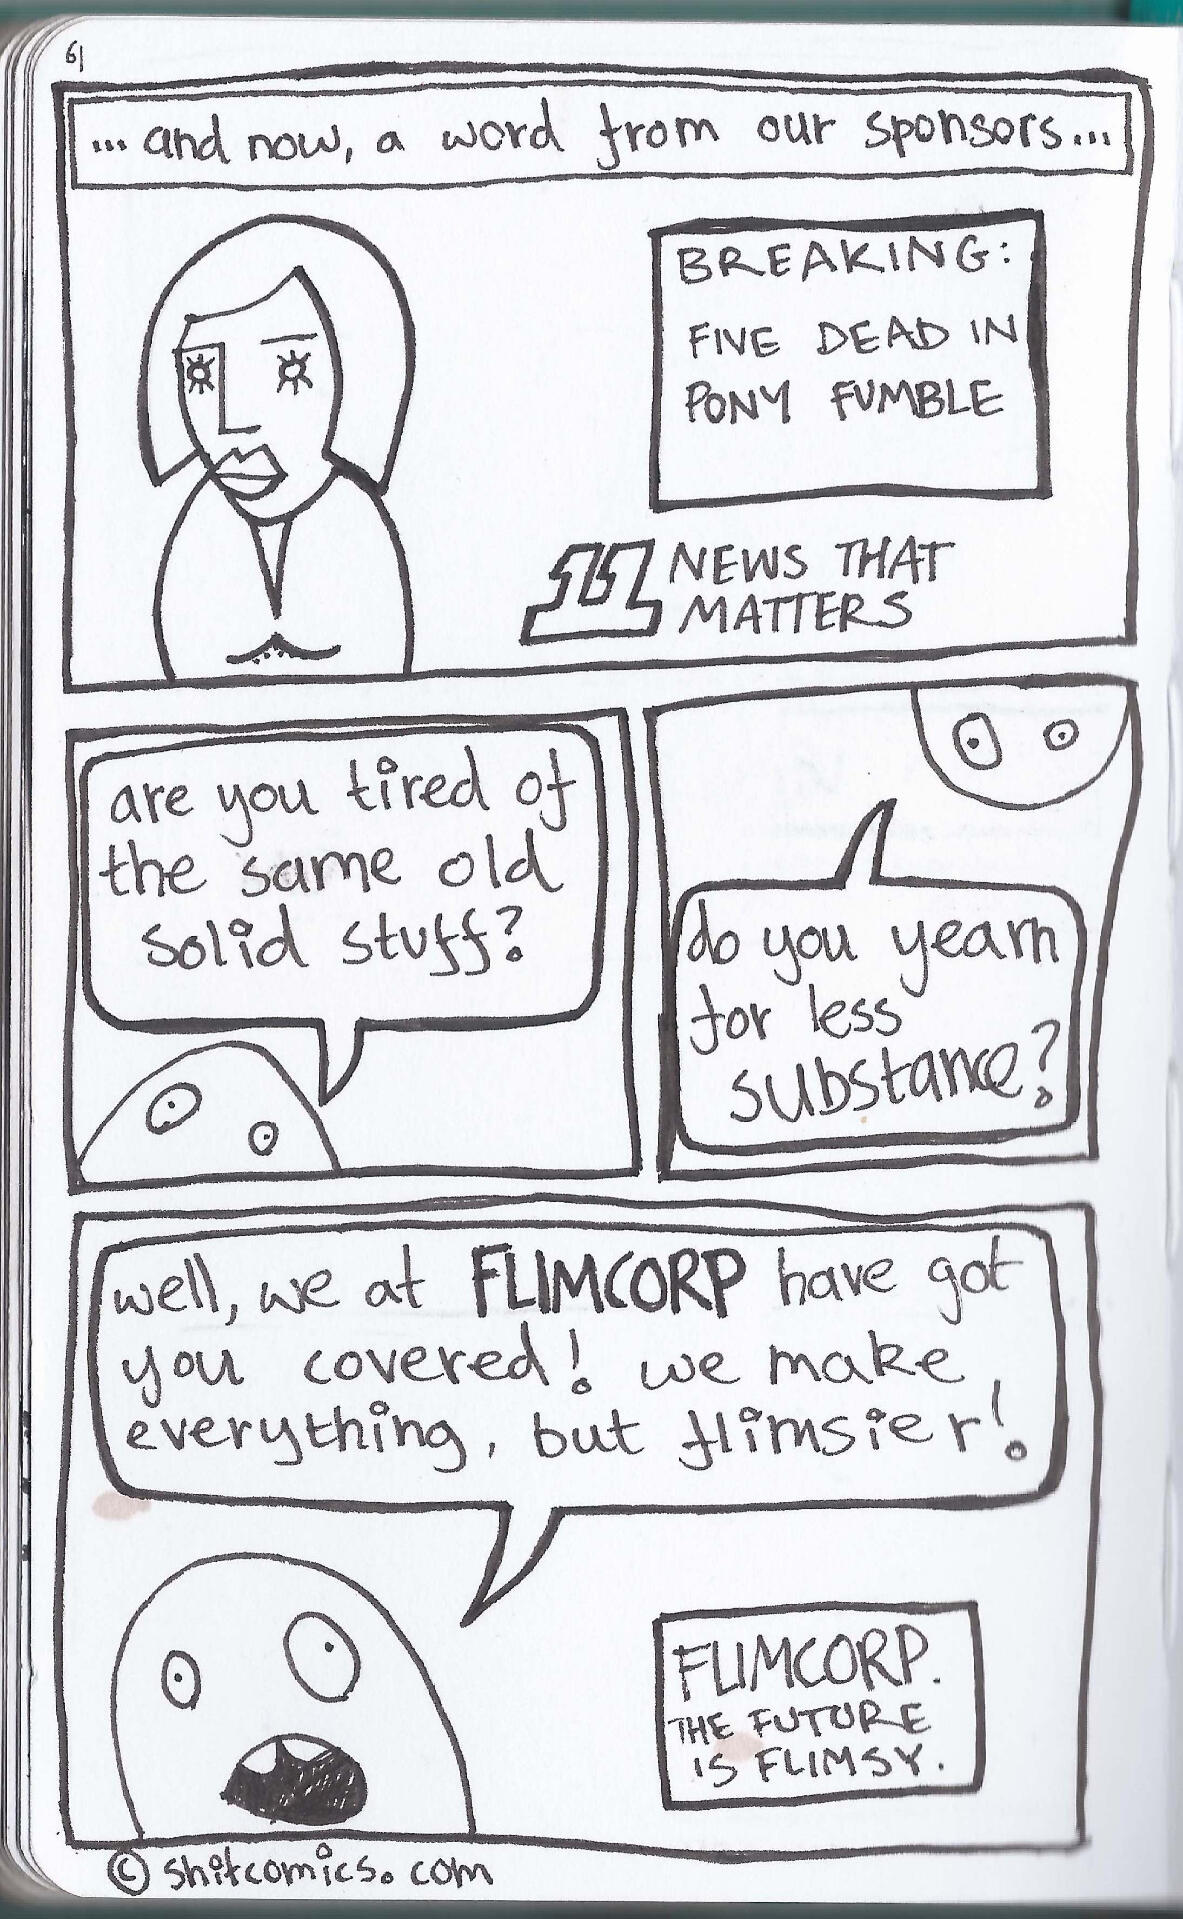 61
... and now, a word from our sponsors...
BREAKING:
FIVE DEAD IN
PONY FUMBLE
11 NEWS THAT
MATTERS
are you tired of
the same old
solid stuff?
do you yearn
for less
substance?
well, we at FLIMCORP have got
you covered! we make
everything, but flimsier!
FLIMCORP.
THE FUTURE
IS FLIMSY.
© shitcomics.com